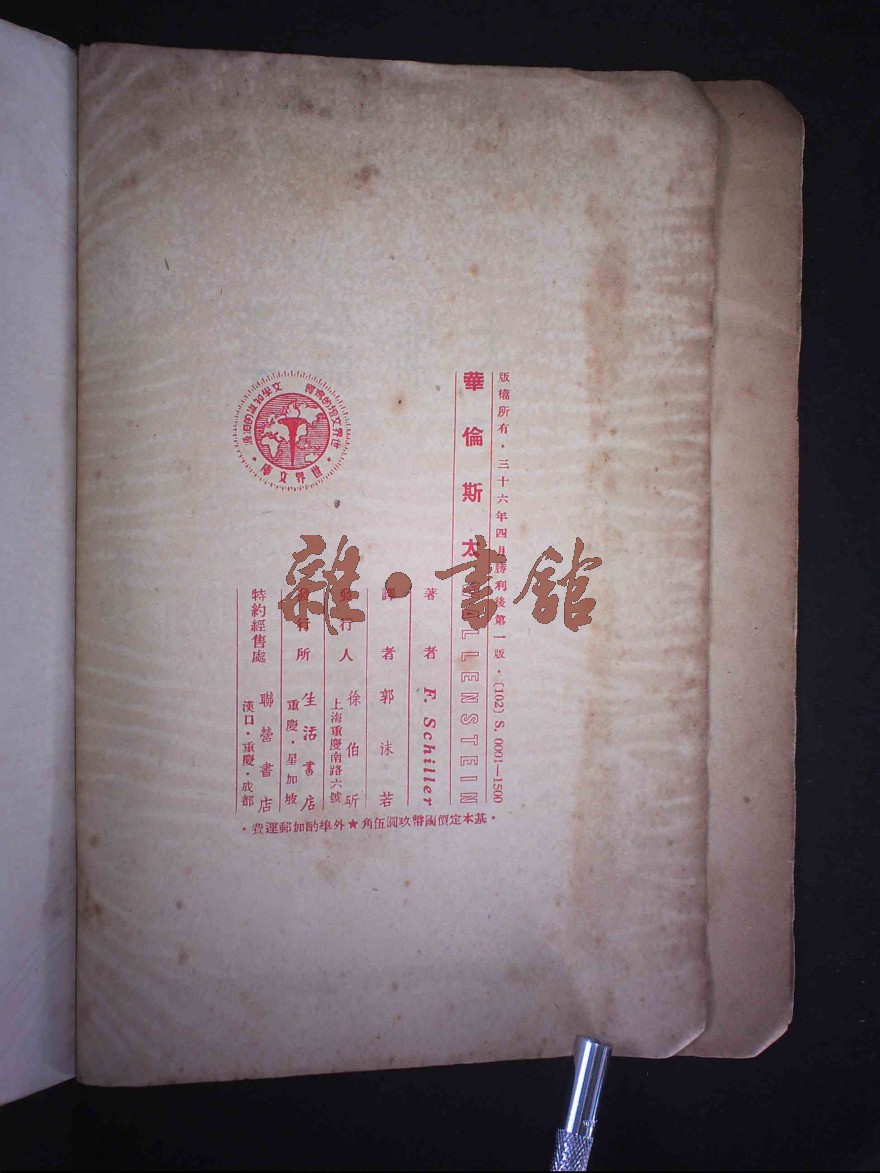 版權所有・三十六年四月勝利後第一版・〔102〕S. 0001—1500
華倫斯太
WALLENSTEIN
著者 F. Schiller
譯者 郭沫若
發行人 徐伯昕
上海重慶南路六號
發行所 生活書店
重慶・星加坡
特約經售處 聯營書店
漢口・重慶・成都
・基本定價國幣玖圓伍角★外埠酌加郵運費・
世界文庫
雜・書館